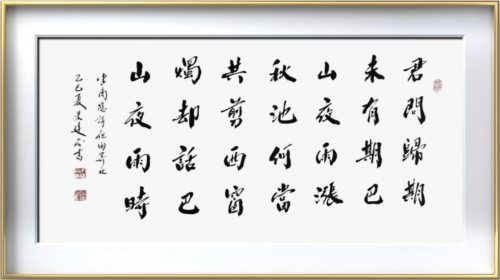 君問歸期
未有期巴
山夜雨漲
秋池何當
共剪西窗
燭却話巴
山夜雨時
李商隱詩夜雨寄北
乙巳夏 書